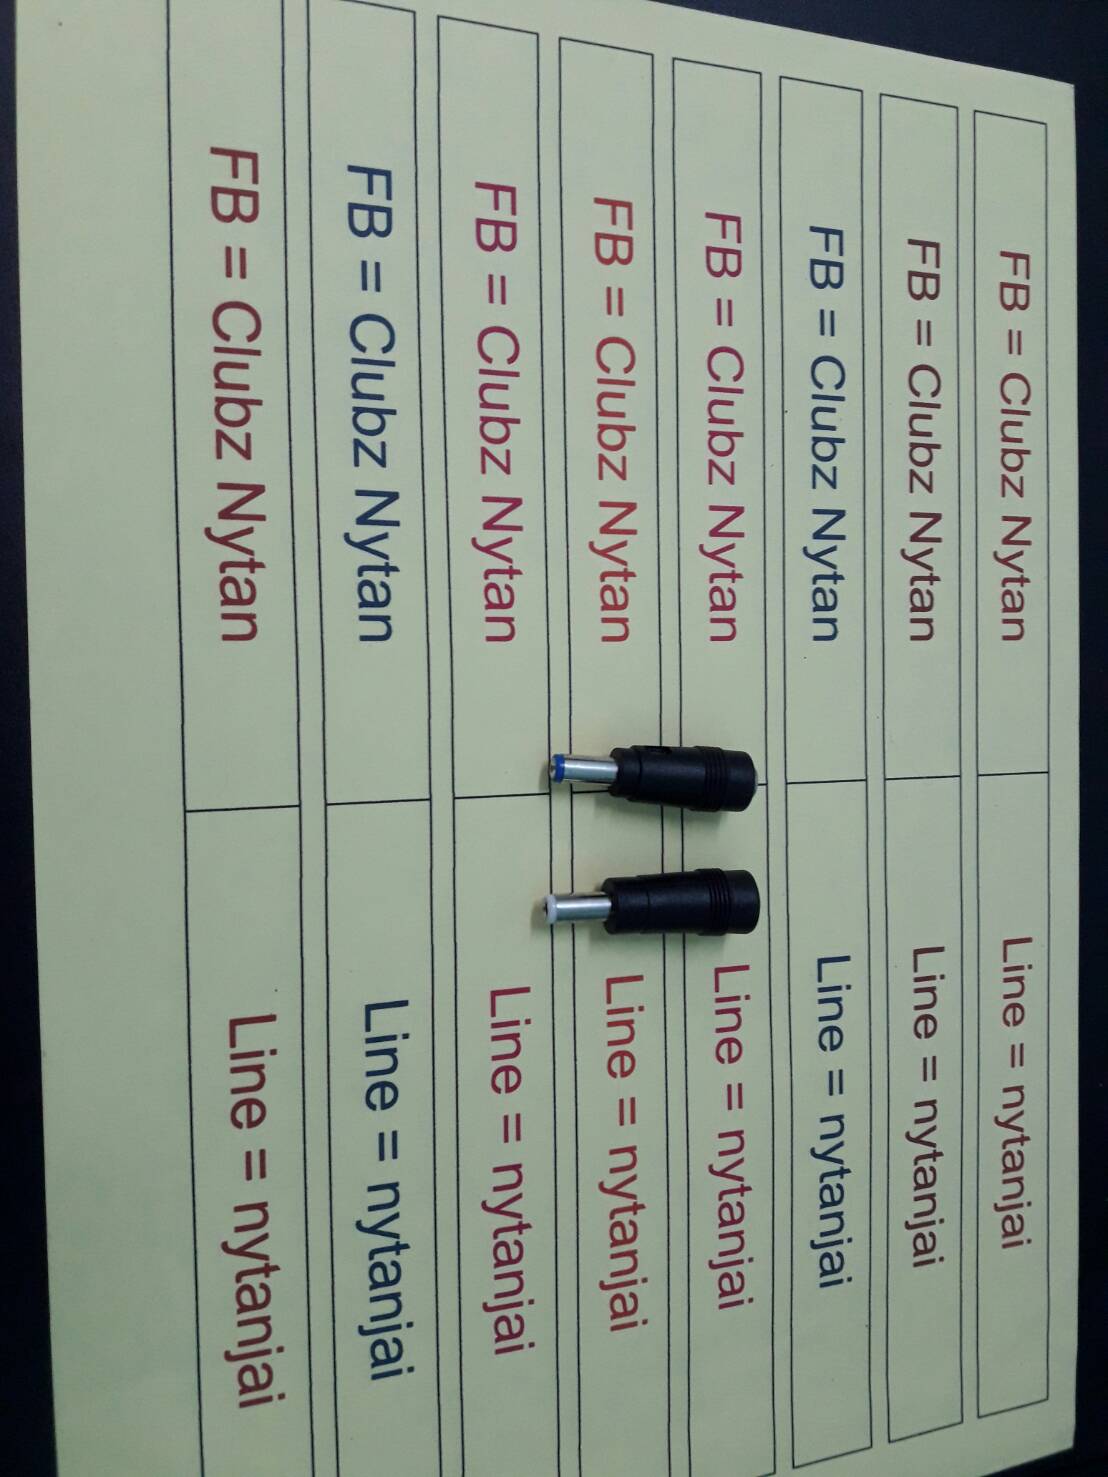 FB = Clubz Nytan Line = nytanjai
FB = Clubz Nytan Line = nytanjai
FB = Clubz Nytan Line = nytanjai
FB = Clubz Nytan Line = nytanjai
FB = Clubz Nytan Line = nytanjai
FB = Clubz Nytan Line = nytanjai
FB = Clubz Nytan Line = nytanjai
FB = Clubz Nytan Line = nytanjai